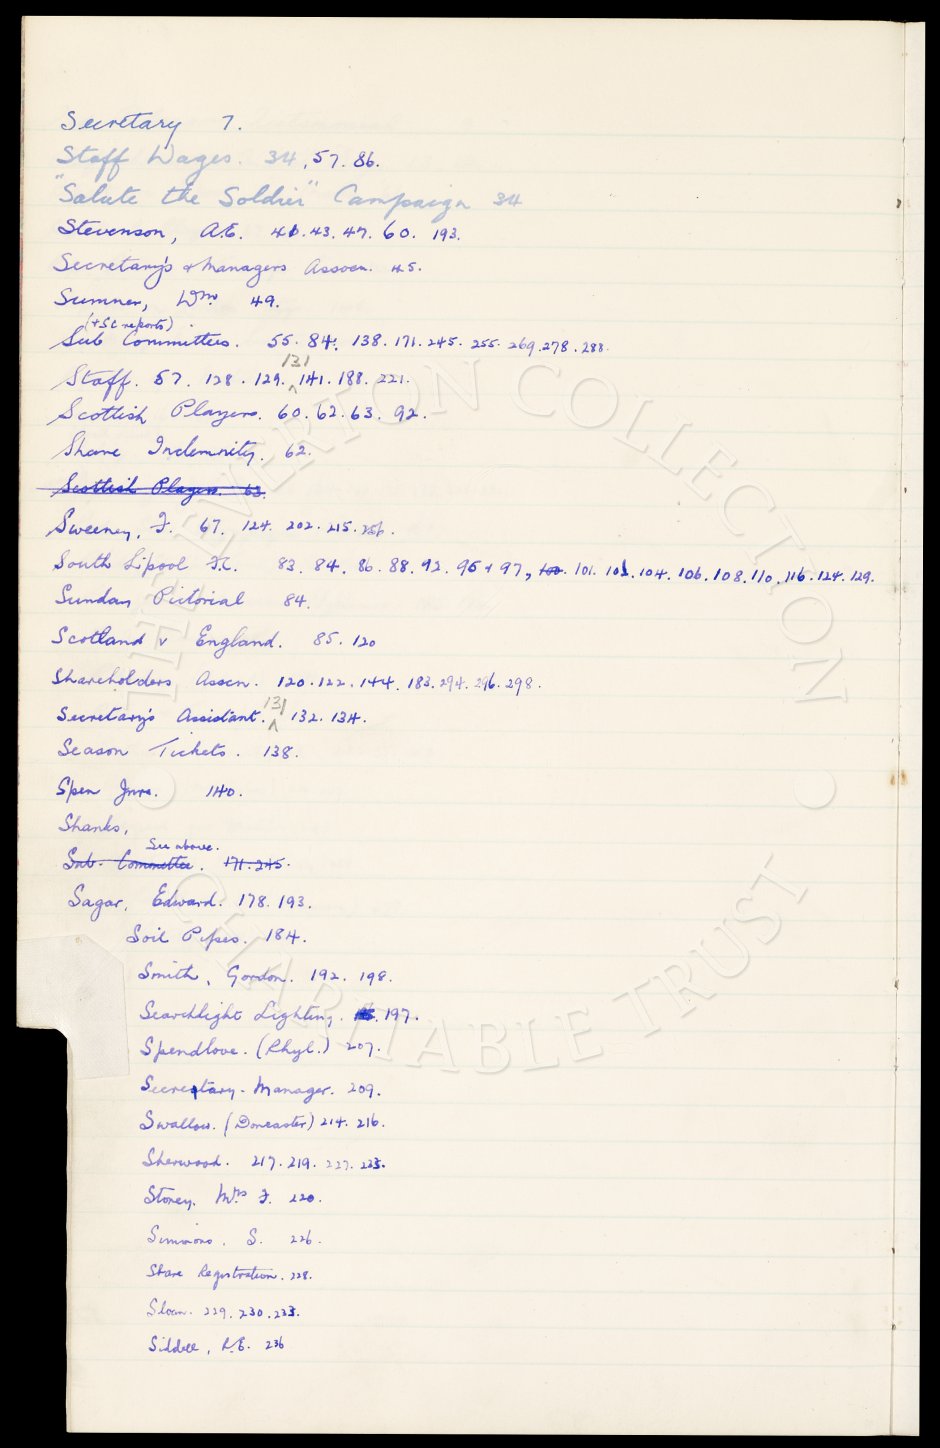 Secretary 7.
Staff Wages. 34, 57. 86.
"Salute the Soldier" Campaign 34
Stevenson, A.E. 41. 43. 47. 60. 193.
Secretary's & Managers Assocn. 45.
Sumner, Wm. 49.
(+ Sc reports)
Sub Committees. 55. 84. 138. 171. 245. 255. 269. 278. 288.
131
Staff. 57. 128. 129. 141. 188. 221.
Scottish Players. 60. 62. 63. 92.
Share Indemnity. 62.
Scottish Players. 63.
Sweeney, F. 67. 124. 202. 215. 256.
South Lpool F.C. 83. 84. 86. 88. 92. 95 & 97, 100. 101. 102. 104. 106. 108. 110. 116. 124. 129.
Sunday Pictorial 84.
Scotland v England. 85. 120
Shareholders Asscn. 120. 122. 144. 183. 294. 296. 298.
131
Secretary's Assistant. 132. 134.
Season Tickets. 138.
140.
Shanks,
See above.
Sub-Committee. 171. 245.
Sagar, Edward. 178. 193.
Soil Pipes. 184.
Smith, Gordon. 192. 198.
Searchlight Lighting. 197.
Spendlove. (Rhyl.) 207.
Secretary-Manager. 209.
Swallow. (Doncaster) 214. 216.
Sherwood. 217. 219. 227. 223.
Storey. Mrs F. 220.
Simmons. S. 226.
Share Registration. 228.
Sloan. 229. 230. 233.
Siddell, R.E. 236
THE EVERTON COLLECTION
CHARITABLE TRUST